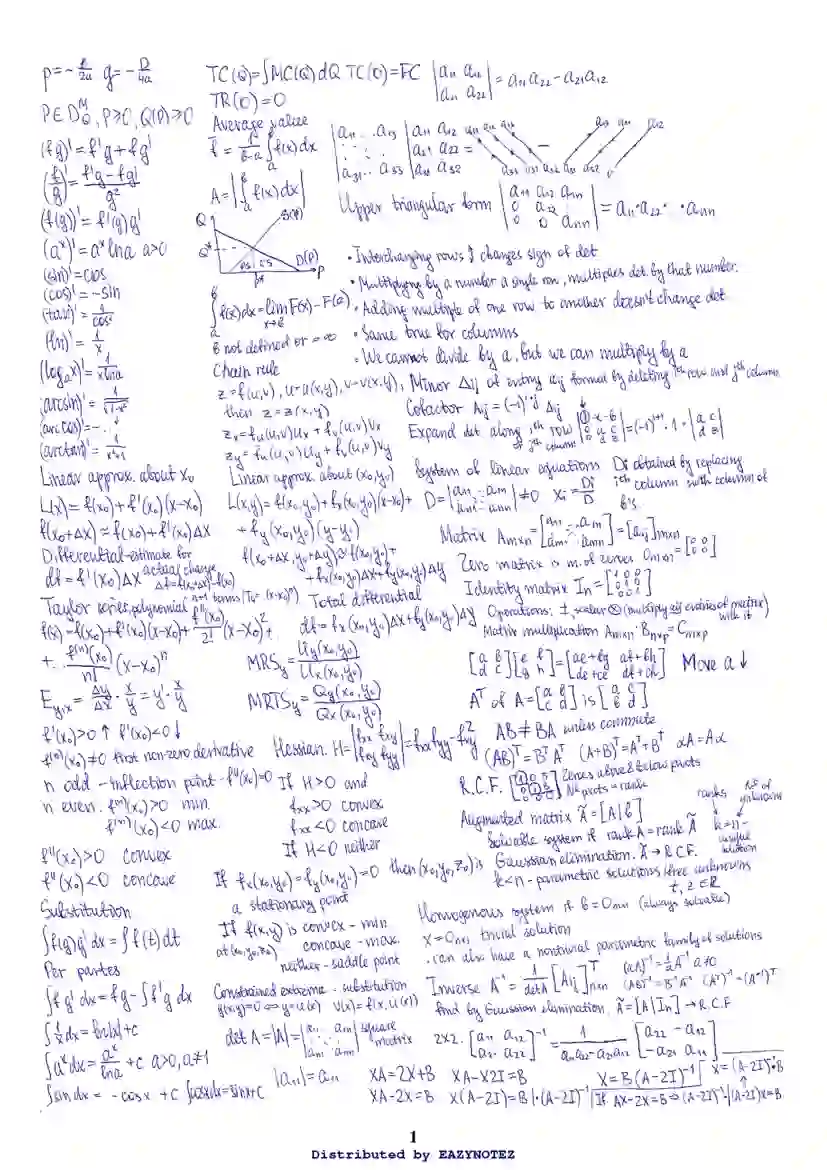 p=-b/2a q=-D/4a
P∈D_Q^M, P≥0, Q(P)≥0
(fg)'=f'g+fg'
(f/g)'=f'g-fg'/g²
(f(g))'=f'(g)g'
(a^x)'=a^x ln a a>0
(sin)'=cos
(cos)'=-sin
(tan)'=1/cos²
(ln)'=1/x
(log_a x)'=1/x ln a
(arcsin)'=1/√1-x²
(arccos)'=-..
(arctan)'=1/x²+1
Linear approx. about x₀
L(x)=f(x₀)+f'(x₀)(x-x₀)
f(x₀+Δx)≈f(x₀)+f'(x₀)Δx
Differential-estimate for
df=f'(x₀)Δx actual change
Δf=f(x₀+Δx)-f(x₀)
Taylor series, polynomial
f(x)=f(x₀)+f'(x₀)(x-x₀)+f''(x₀)/2!(x-x₀)²+
+..f⁽ⁿ⁾(x₀)/n!(x-x₀)ⁿ
E_y,x=Δy/Δx·x/y=y'·x/y
f'(x₀)>0↑ f'(x₀)<0↓
f⁽ⁿ⁾(x₀)≠0 first non-zero derivative
n odd - inflection point - f''(x₀)=0
n even. f⁽ⁿ⁾(x₀)>0 min.
f⁽ⁿ⁾(x₀)<0 max.
f''(x₀)>0 convex
f''(x₀)<0 concave
Substitution
∫f(g)g'dx=∫f(t)dt
Per partes
∫fg'dx=fg-∫f'g dx
∫1/x dx=ln|x|+c
∫a^x dx=a^x/ln a+c a>0, a≠1
∫sin dx=-cosx+c ∫cosxdx=sinx+c
TC(Q)=∫MC(Q)dQ TC(0)=FC
TR(0)=0
Average value
f=1/b-a∫f(x)dx
A=|∫f(x)dx|
Q
S(P)
Q*
D(P)
P
∫f(x)dx=lim F(x)-F(a)
x→b
b not defined or =∞
Chain rule
z=f(u,v), u=u(x,y), v=v(x,y),
then z=z(x,y)
z_x=f_u(u,v)u_x+f_v(u,v)v_x
z_y=f_u(u,v)u_y+f_v(u,v)v_y
Linear approx. about (x₀,y₀)
L(x,y)=f(x₀,y₀)+f_x(x₀,y₀)(x-x₀)+
+f_y(x₀,y₀)(y-y₀)
f(x₀+Δx,y₀+Δy)≈f(x₀,y₀)+
+f_x(x₀,y₀)Δx+f_y(x₀,y₀)Δy
Total differential
df=f_x(x₀,y₀)Δx+f_y(x₀,y₀)Δy
MRS_y=U_y(x₀,y₀)/U_x(x₀,y₀)
MRTS_y=Q_y(x₀,y₀)/Q_x(x₀,y₀)
Hessian. H=|f_xx f_xy f_xy f_yy|=f_xx f_yy-f_xy²
If H>0 and
f_xx>0 convex
f_xx<0 concave
If H<0 neither
If f_x(x₀,y₀)=f_y(x₀,y₀)=0 then (x₀,y₀,z₀) is
a stationary point
If f(x,y) is convex - min
at (x₀,y₀,z₀) concave - max.
neither - saddle point
Constrained extreme - substitution
g(x,y)=0⇔y=u(x) v(x)=f(x,u(x))
det A=|A|=|a₁₁ ... a₁ₙ aₙ₁ ... aₙₙ| square matrix
|a₁₁|=a₁₁
|a₁₁ a₁₂ a₂₁ a₂₂|=a₁₁a₂₂-a₂₁a₁₂
Upper triangular form =a₁₁·a₂₂·..·aₙₙ
• Interchanging rows changes sign of det
• Multiplying by a number a single row, multiplies det. by that number.
• Adding multiple of one row to another doesn't change det
• Same true for columns
• We cannot divide by a, but we can multiply by a
Minor Δij of entry aij formed by deleting ith row and jth column
Cofactor Aij=(-1)^i+j Δij
Expand det along ith row or jth column =(-1)^1+1·1·|a c d z|
System of linear equations Di obtained by replacing
D=|a₁₁ ... a₁ₙ aₙ₁ ... aₙₙ|≠0 xi=Di/D ith column with column of
b's.
Matrix A_mxn=[a₁₁ ... a₁ₙ aₘ₁ ... aₘₙ]=[aij]mxn
Zero matrix is m. of zeroes 0mxn=[0 0 0 0]
Identity matrix In=[1 0 0 0 1 0 0 0 1]
Operations: ±, scalar ⊗ (multiply aij entries of matrix) with it
Matrix multiplication Amxn·Bnxp=Cmxp
[a b d c][e f g h]=[ae+bg af+bh de+ce df+ch] Move a↓
A^T of A=[a b c d] is [a c b d]
AB≠BA unless commute
(AB)^T=B^T A^T (A+B)^T=A^T+B^T αA=Aα
R.C.F. Zeroes above & below pivots
Nº pivots = rank
Augmented matrix Ã=[A|b] ranks Nº of unknowns
Solvable system if rank A=rank Ã k=n - unique solution
Gaussian elimination. Ã→R.C.F.
k<n - parametric solutions free unknowns
t, z∈R
Homogenous system if b=0mx1 (always solvable)
X=0nx1 trivial solution
• can also have a nontrivial parametric family of solutions
Inverse A⁻¹=1/detA[Aij]^T nxn (αA)⁻¹=1/αA⁻¹ α≠0
(AB)⁻¹=B⁻¹A⁻¹ (A^T)⁻¹=(A⁻¹)^T
find by Gaussian elimination. Ã=[A|In]→R.C.F
2x2. [a₁₁ a₁₂ a₂₁ a₂₂]⁻¹=1/a₁₁a₂₂-a₂₁a₁₂[a₂₂ -a₁₂ -a₂₁ a₁₁]
XA=2X+B XA-X2I=B X=B(A-2I)⁻¹ X=(A-2I)⁻¹·B
XA-2X=B X(A-2I)=B|·(A-2I)⁻¹ If AX-2X=B⇒(A-2I)⁻¹·|(A-2I)X=B.
1
Distributed by EAZYNOTEZ